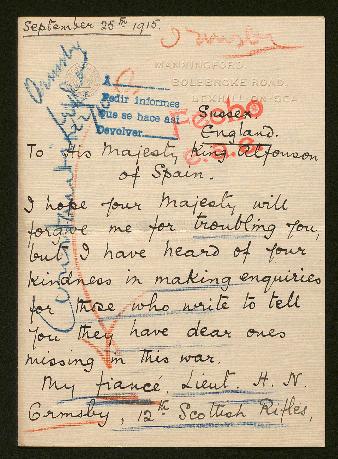 September 25th 1915.
Ormsby
MANNINGFORD,
BOLEBROKE ROAD,
BEXHILL-ON-SEA
A
Pedir informes
que se hace así
Devolver
Fecho
Sussex,
England.
To His Majesty King Alfonson
of Spain.
I hope your Majesty will
forgive me for troubling you,
but I have heard of your
kindness in making enquiries
for those who write to tell
you they have dear ones
missing in this war.
My fiancé, Lieut H. N.
Ormsby, 12th Scottish Rifles,